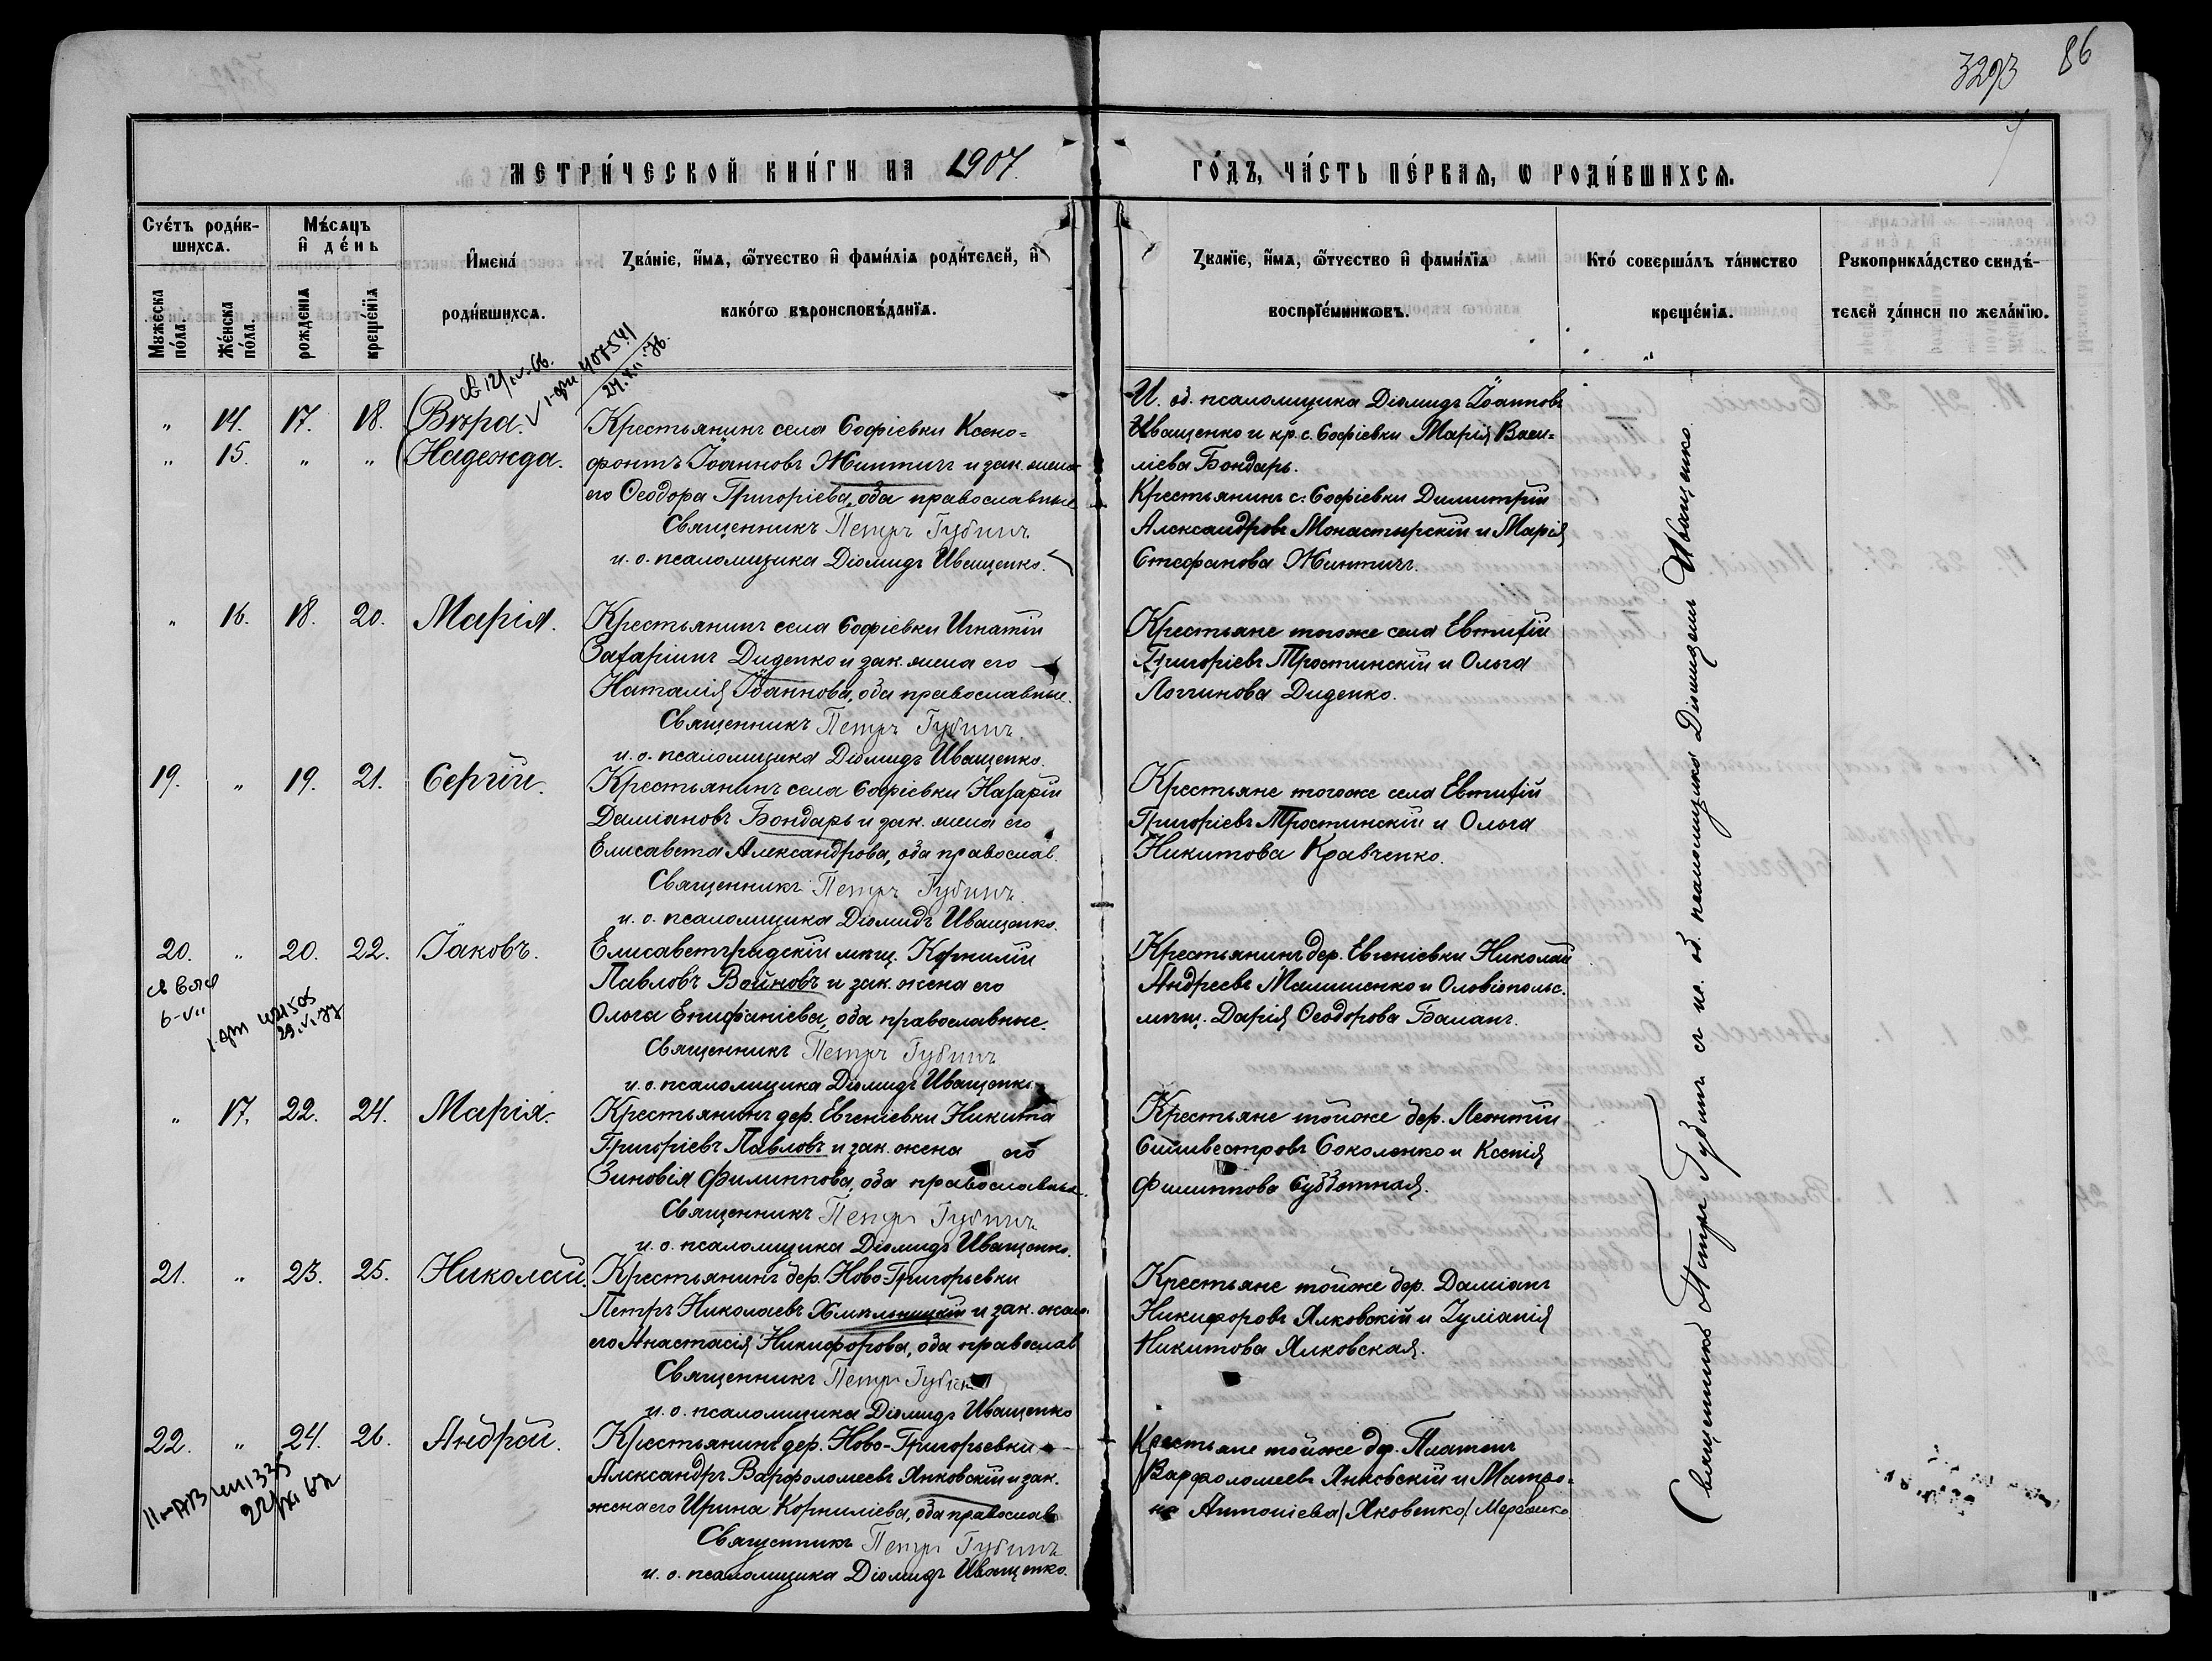 3293 86
МЕТРИ́ЧЕСКОЙ КНИ́ГИ НА 1907. ГО́ДЪ, ЧА́СТЬ ПЕ́РВАЯ, Ѡ РОДИ́ВШИХСЯ.
Сче́тъ роди́в-
шихсѧ.
Мѣ́сѧцъ
и҆ де́нь
Мꙋжеска по́ла.
Же́нска по́ла.
рожденїѧ
креще́нїѧ
И҆мена́
роди́вшихсѧ.
Зва́нїе, и҆́мѧ, ѻ҆́тчество и҆ фами́лїѧ роди́телей, и҆
како́гѡ вѣроисповѣ́данїѧ.
Званїе, и҆́мѧ, ѻ҆́тчество и҆ фами́лїѧ
воспрїе́мникѡвъ.
Кто́ соверша́лъ та́инство
креще́нїѧ.
Рꙋкоприкла́дство свидѣ́-
телей за́писи по жела́нїю.
„ 14. 17. 18. Вѣра.
„ 15. „ „ Надежда.
Крестьянинъ села Софіевки Ксено=
фонтъ Іоанновъ Жинтичъ и зак. жена
его Ѳеодора Григоріева, оба православные
Священникъ Петръ Губинъ
и. о. псаломщика Діомидъ Иващенко.
И. об. псаломщика Діомидъ Іоанновъ
Иващенко и кр. с. Софіевки Марія Васи=
ліева Бондарь.
Крестьянинъ с. Софіевки Димитрій
Александровъ Монастирскій и Марія
Стефанова Жинтичъ.
„ 16. 18. 20. Марія.
Крестьянинъ села Софіевки Игнатій
Захаріинъ Диденко и зак. жена его
Наталія Іоаннова, оба православные.
Священникъ Петръ Губинъ.
и. о. псаломщика Діомидъ Иващенко.
Крестьяне тогоже села Евтихій
Григоріевъ Тростинскій и Ольга
Логгинова Диденко.
19. „ 19. 21. Сергій.
Крестьянинъ села Софіевки Назарій
Даміановъ Бондарь и зак. жена его
Елисавета Александрова, оба православ.
Священникъ Петръ Губинъ.
и. о. псаломщика Діомидъ Иващенко.
Крестьяне тогоже села Евтихій
Григоріевъ Тростинскій и Ольга
Никитова Кравченко.
20. „ 20. 22. Іаковъ.
Елисаветградскій мѣщ. Корнилій
Павловъ Войновъ и зак. жена его
Ольга Епифаніева, оба православные.
Священникъ Петръ Губинъ
и. о. псаломщика Діомидъ Иващенко.
Крестьянинъ дер. Евгеніевки Николай
Андреевъ Малишенко и Ольвіопольс.
мѣщ. Дарія Ѳеодорова Баланъ.
„ 17. 22. 24. Марія.
Крестьянинъ дер. Евгеніевки Никита
Григоріевъ Павловъ и зак. жена его
Зиновія Филиппова, оба православные.
Священникъ Петръ Губинъ
и. о. псаломщика Діомидъ Иващенко.
Крестьяне тойже дер. Леонтій
Сильвестровъ Соколенко и Ксенія
Филиппова Субботная.
21. „ 23. 25. Николай.
Крестьянинъ дер. Ново-Григорьевки
Петръ Николаевъ Хмѣльницкій и зак. жена
его Анастасія Никифорова, оба православ
Священникъ Петръ Губинъ
и. о. псаломщика Діомидъ Иващенко
Крестьяне тойже дер. Даміанъ
Никифоровъ Ялковскій и Іуліанія
Никитова Ялковская.
22. „ 24. 26. Андрей.
Крестьянинъ дер. Ново-Григорьевки
Александръ Варфоломеевъ Янковскій и зак.
жена его Ирина Корниліева, оба православ
Священникъ Петръ Губинъ
и. о. псаломщика Діомидъ Иващенко.
Крестьяне тойже дер. Платонъ
Варфоломеевъ Янковскій и Матро=
на Антоніева /Яковенко/
Священникъ Петръ Губинъ съ ис. об. псаломщика Діомидомъ Иващенко.